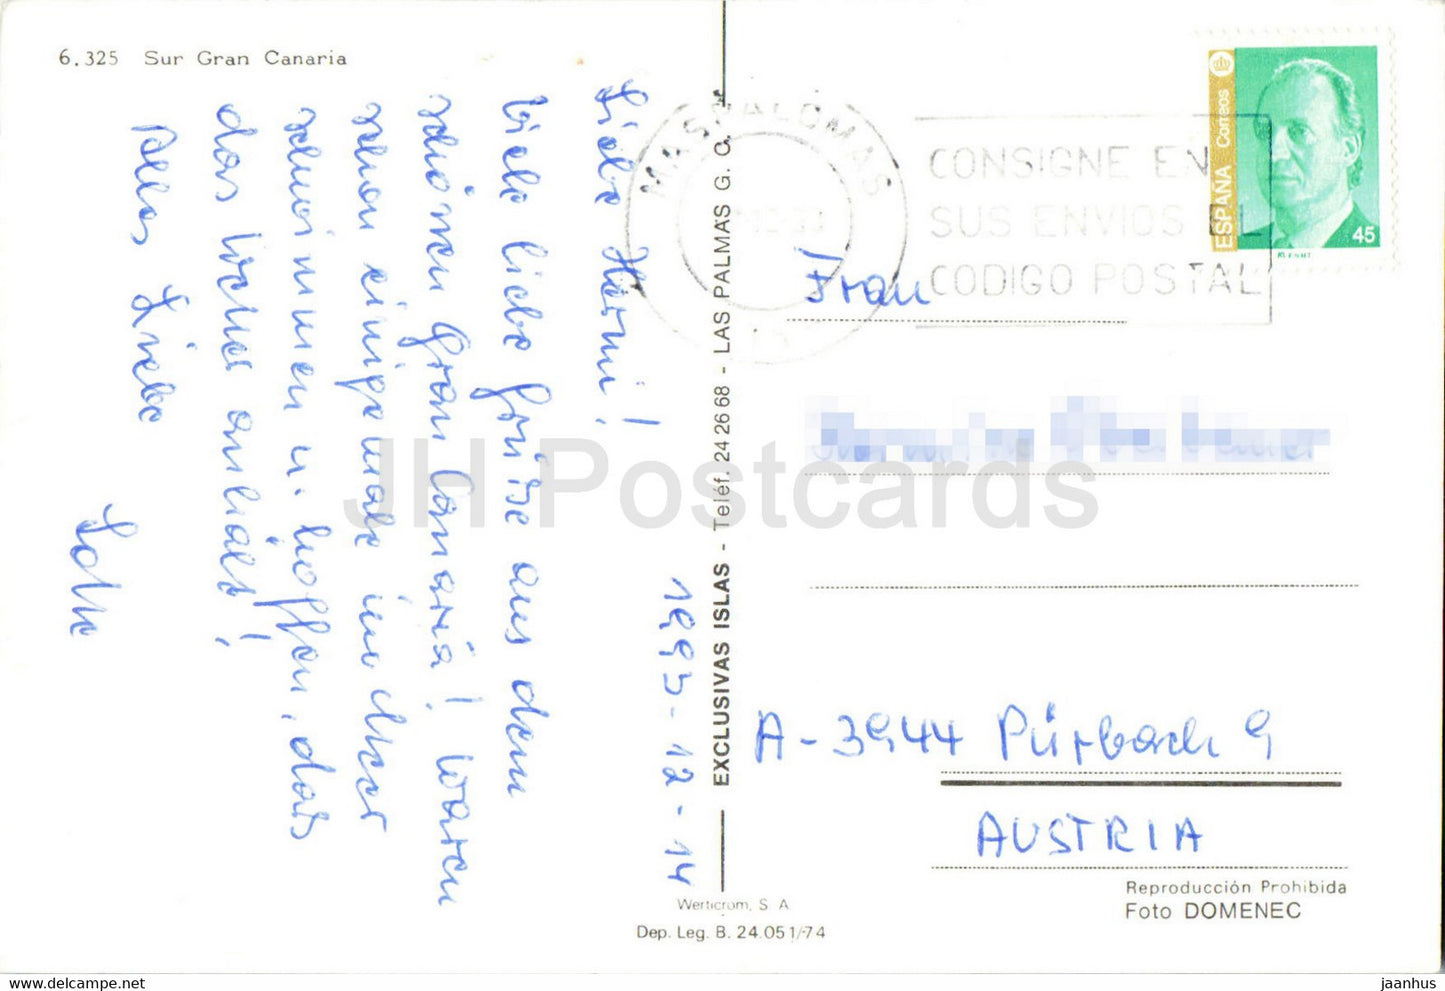 6.325 Sur Gran Canaria
1993-12-14
Liebe Hermi!
Viele liebe Grüße aus dem
schönen Gran Canaria! Waren
schon einige male im Meer
schwimmen u. hoffen, daß
das Wetter anhält!
Alles Liebe
EXCLUSIVAS ISLAS - Teléf. 24 26 68 - LAS PALMAS G. C.
MASPALOMAS
CONSIGNE EN
SUS ENVIOS EL
CODIGO POSTAL
ESPAÑA Correos
45
Frau
A-3944 Pürbach 9
AUSTRIA
Reproducción Prohibida
Foto DOMENEC
Werticrom, S. A
Dep. Leg. B. 24.051/-74
JH Postcards
jaanhus